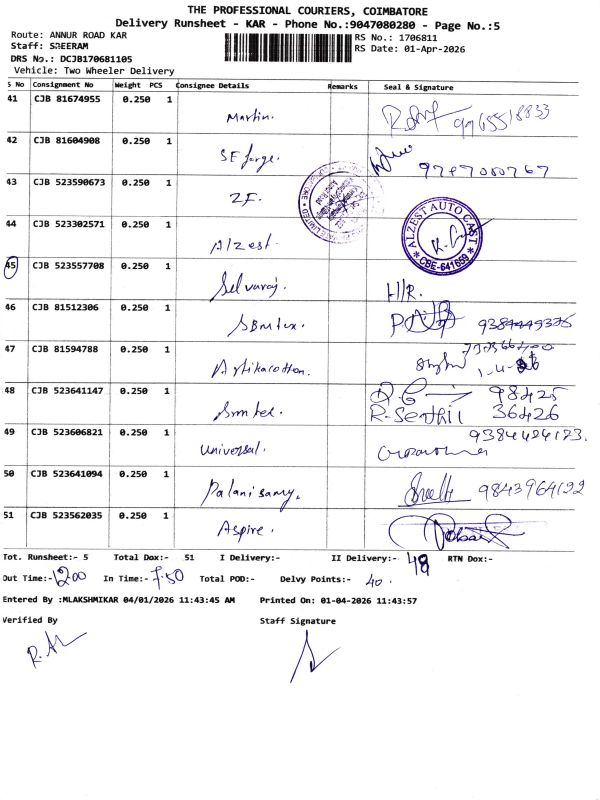 THE PROFESSIONAL COURIERS, COIMBATORE
Delivery Runsheet - KAR - Phone No.:9047080280 - Page No.:5
Route: ANNUR ROAD KAR RS No.: 1706811
Staff: SREERAM RS Date: 01-Apr-2026
DRS No.: DCJB170681105
Vehicle: Two Wheeler Delivery
S No Consignment No Weight PCS Consignee Details Remarks Seal & Signature
41 CJB 81674955 0.250 1 Martin.
42 CJB 81604908 0.250 1 SE forge. 9747000767
43 CJB 523590673 0.250 1 ZF.
44 CJB 523302571 0.250 1 Alzest. ALZEST AUTO CAST CBE-641659
45 CJB 523557708 0.250 1 Selvaraj. H/R.
46 CJB 81512306 0.250 1 SBmtex.
47 CJB 81594788 0.250 1
48 CJB 523641147 0.250 1 98425
R-Senthil 36426
49 CJB 523606821 0.250 1 Universal.
50 CJB 523641094 0.250 1 Palanisamy. 9843964122
51 CJB 523562035 0.250 1 Aspire.
Tot. Runsheet:- 5 Total Dox:- 51 I Delivery:- II Delivery:- 48 RTN Dox:-
Out Time:- 12.00 In Time:- 7.50 Total POD:- Delvy Points:- 40.
Entered By :MLAKSHMIKAR 04/01/2026 11:43:45 AM Printed On: 01-04-2026 11:43:57
Verified By Staff Signature